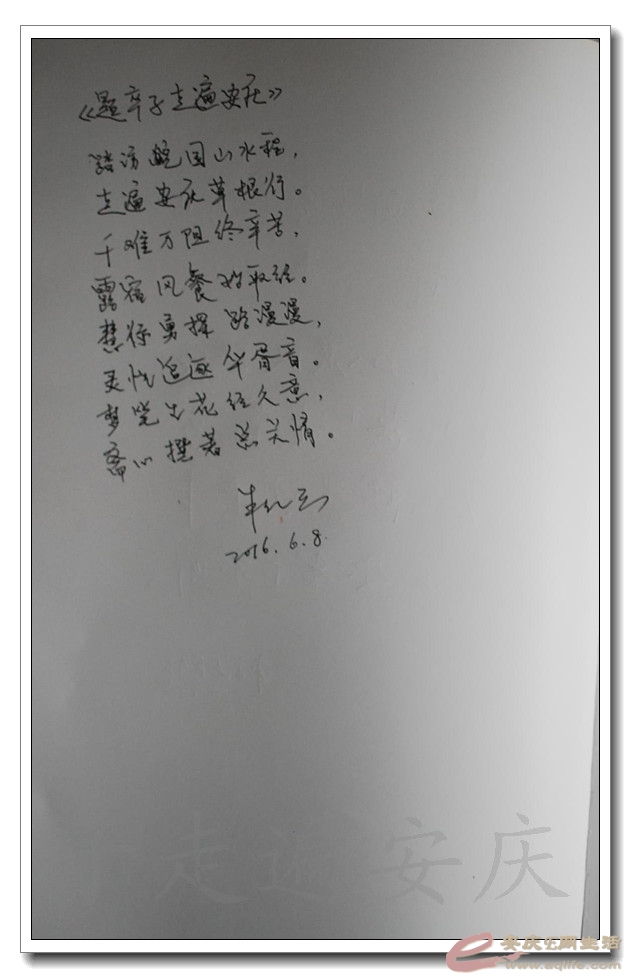 《题卒子走遍安庆》
踏访皖国山水程，
走遍安庆草根行。
千难万阻终辛苦，
露宿风餐始取经。
慧行勇择路漫漫，
灵性追逐华胥音。
梦笔生花经久意，
斋心撰著总关情。
2016.6.8.
走遍安庆
安庆e网生活
www.aqlife.com